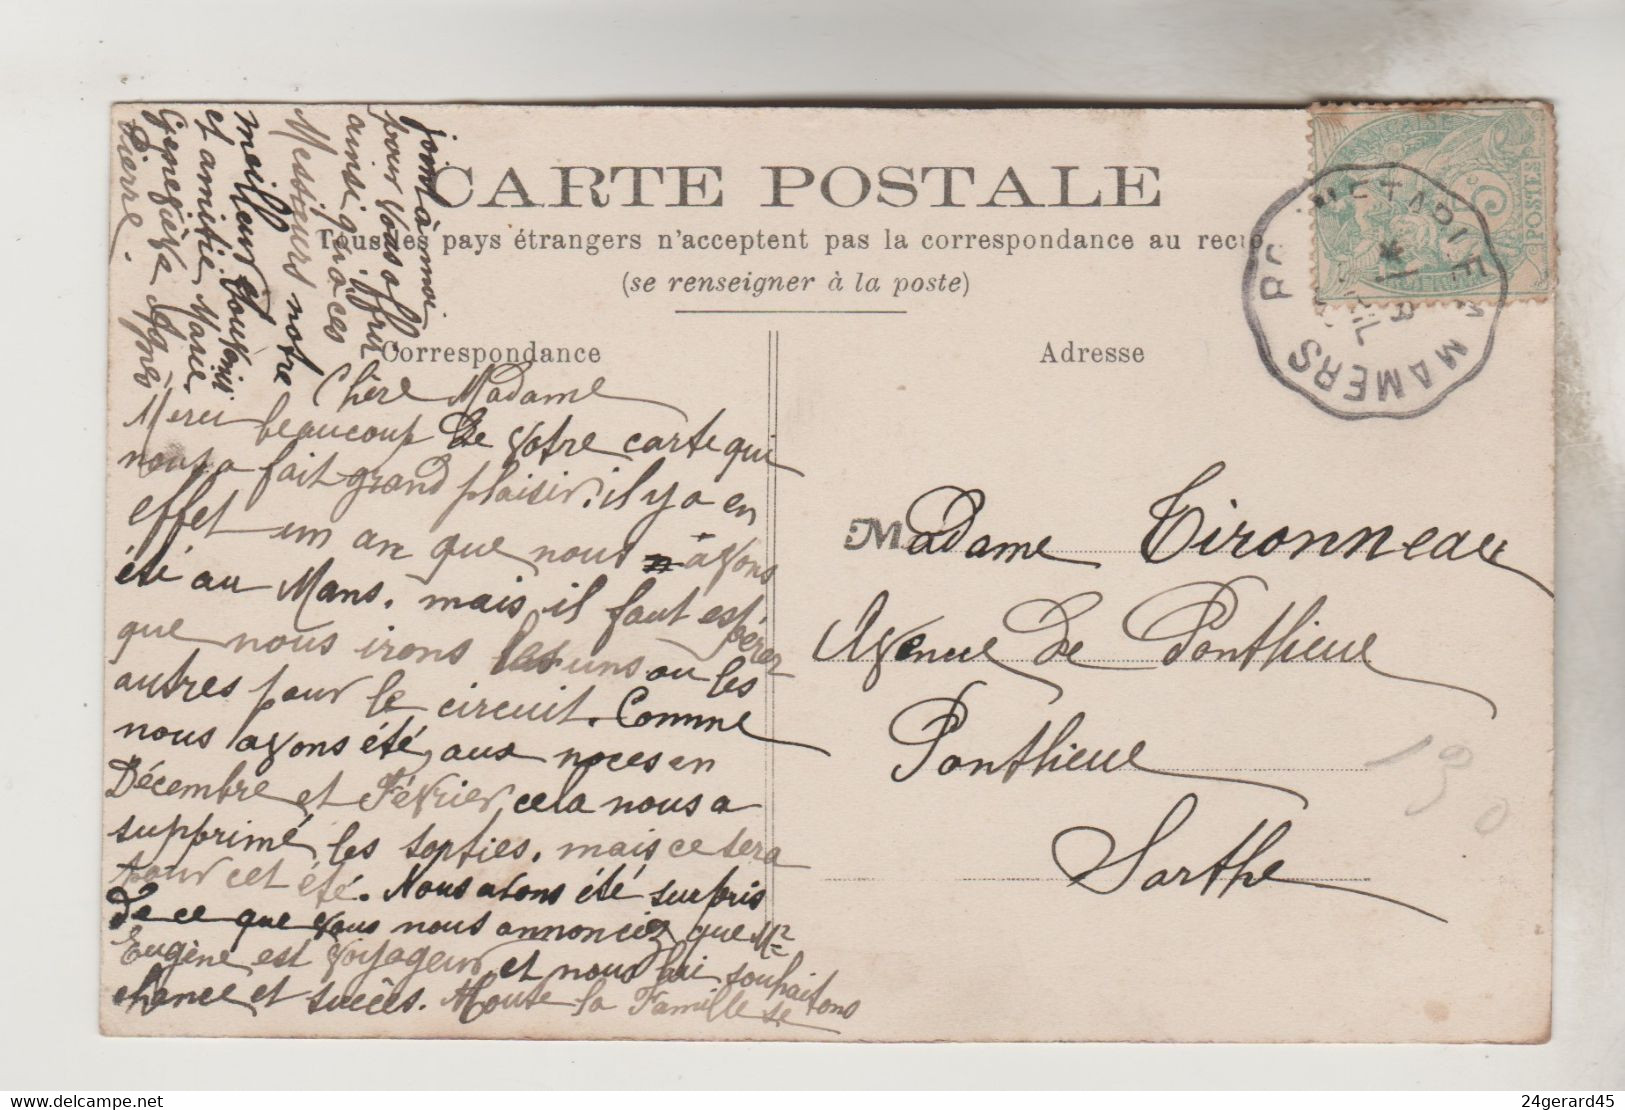 CARTE POSTALE
Tous les pays étrangers n'acceptent pas la correspondance au recto
(se renseigner à la poste)
Correspondance
Adresse
Chère Madame
Merci beaucoup de votre carte qui
nous a fait grand plaisir, il y a en
effet un an que nous avons
été au Mans. mais il faut espérer
que nous irons les uns ou les
autres pour le circuit. Comme
nous avons été, aux noces en
Décembre et Février, cela nous a
supprimé les sorties. mais ce sera
pour cet été. Nous avons été surpris
de ce que vous nous annonciez que Mr
Eugène est voyageur, et nous lui souhaitons
chance et succès. Toute la Famille se
joint à moi
pour vous offrir
ainsi qu'à ces
Messieurs notre
meilleur souvenir
et amitié Marie
Geneviève Agnès
Pierre.
Madame Tironneau
Avenue de Ponthieue
Ponthieue
Sarthe
POSTES
MAMERS
130
24gerard45
delcampe.net